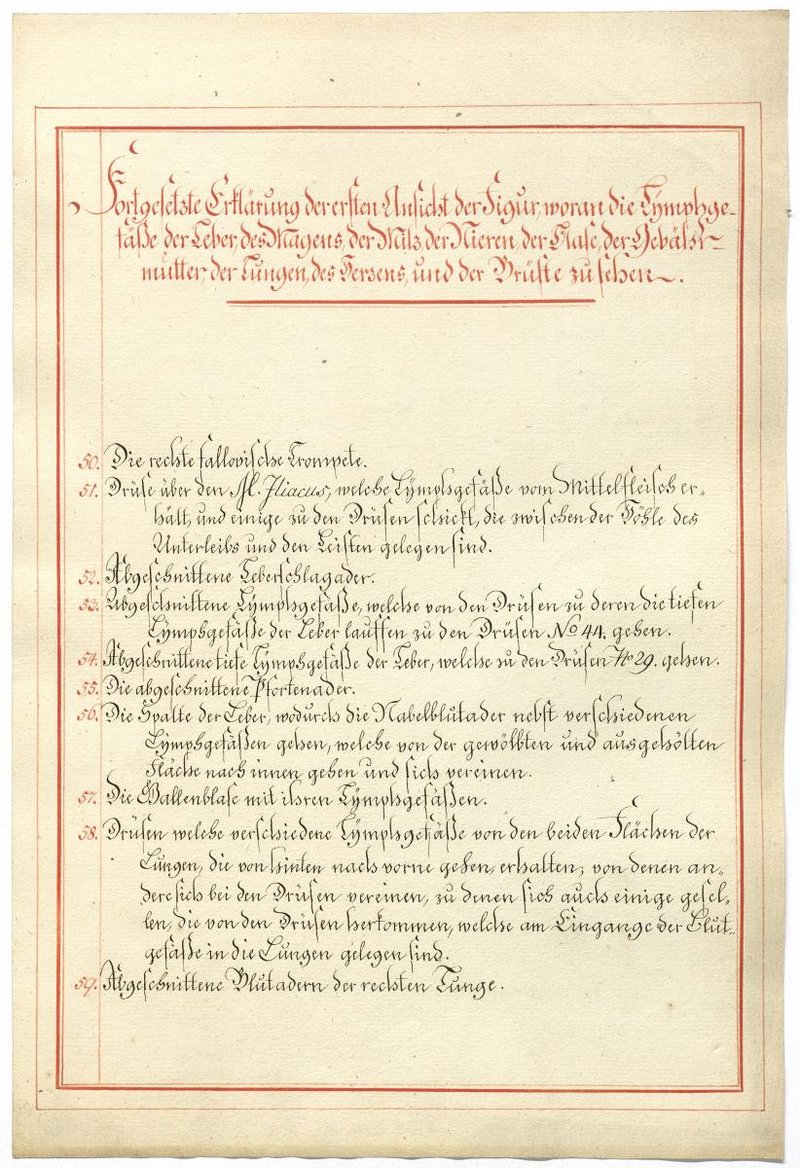 Fortgesetzte Erklärung der ersten Ansicht der Figur, woran die Lymphge-
fäße der Leber, des Magens, der Milz, der Nieren, der Blase, der Gebähr-
mutter, der Lungen, des Herzens, und der Brüste zu sehen.
50. Die rechte fallopische Trompete.
51. Drüse über den M. Iliacus, welche Lÿmphgefäße vom Mittelfleisch er-
hält, und einige zu den Drüsen schickt, die zwischen der Höhle des
Unterleibs und den Leisten gelegen sind.
52. Abgeschnittene Leberschlagader.
53. Abgeschnittene Lÿmphgefäße, welche von den Drüsen zu deren die tiefen
Lÿmphgefäße der Leber lauffen zu den Drüsen No 44. gehen.
54. Abgeschnittene tiefe Lÿmphgefäße der Leber, welche zu den Drüsen No 29. gehen.
55. Die abgeschnittene Pfortenader.
56. Die Spalte der Leber, wodurch die Nabelblutader nebst verschiedenen
Lÿmphgefäßen gehen, welche von der gewölbten und ausgehölten
Fläche nach innen gehen und sich vereinen.
57. Die Gallenblase mit ihren Lÿmphgefäßen.
58. Drüsen welche verschiedene Lÿmphgefäße von den beiden Flächen der
Lungen, die von hinten nach vorne gehen, erhalten; von denen an-
dere sich bei den Drüsen vereinen, zu denen sich auch einige gesel-
len, die von den Drüsen herkommen, welche am Eingange der Blut-
gefäße in die Lungen gelegen sind.
59. Abgeschnittene Blutadern der rechten Lunge.